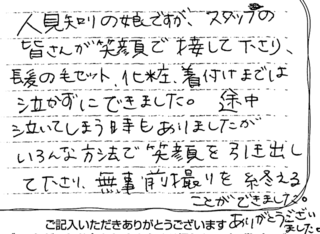 人見知りの娘ですが、スタッフの
皆さんが笑顔で接して下さり、
長髪の毛セット、化粧、着付けまでは
泣かずにできました。途中
泣いてしまう時もありましたが
いろんな方法で笑顔を引き出し
て下さり、無事前撮りを終える
ことができました。
ありがとうござい
ました。
ご記入いただきありがとうございます